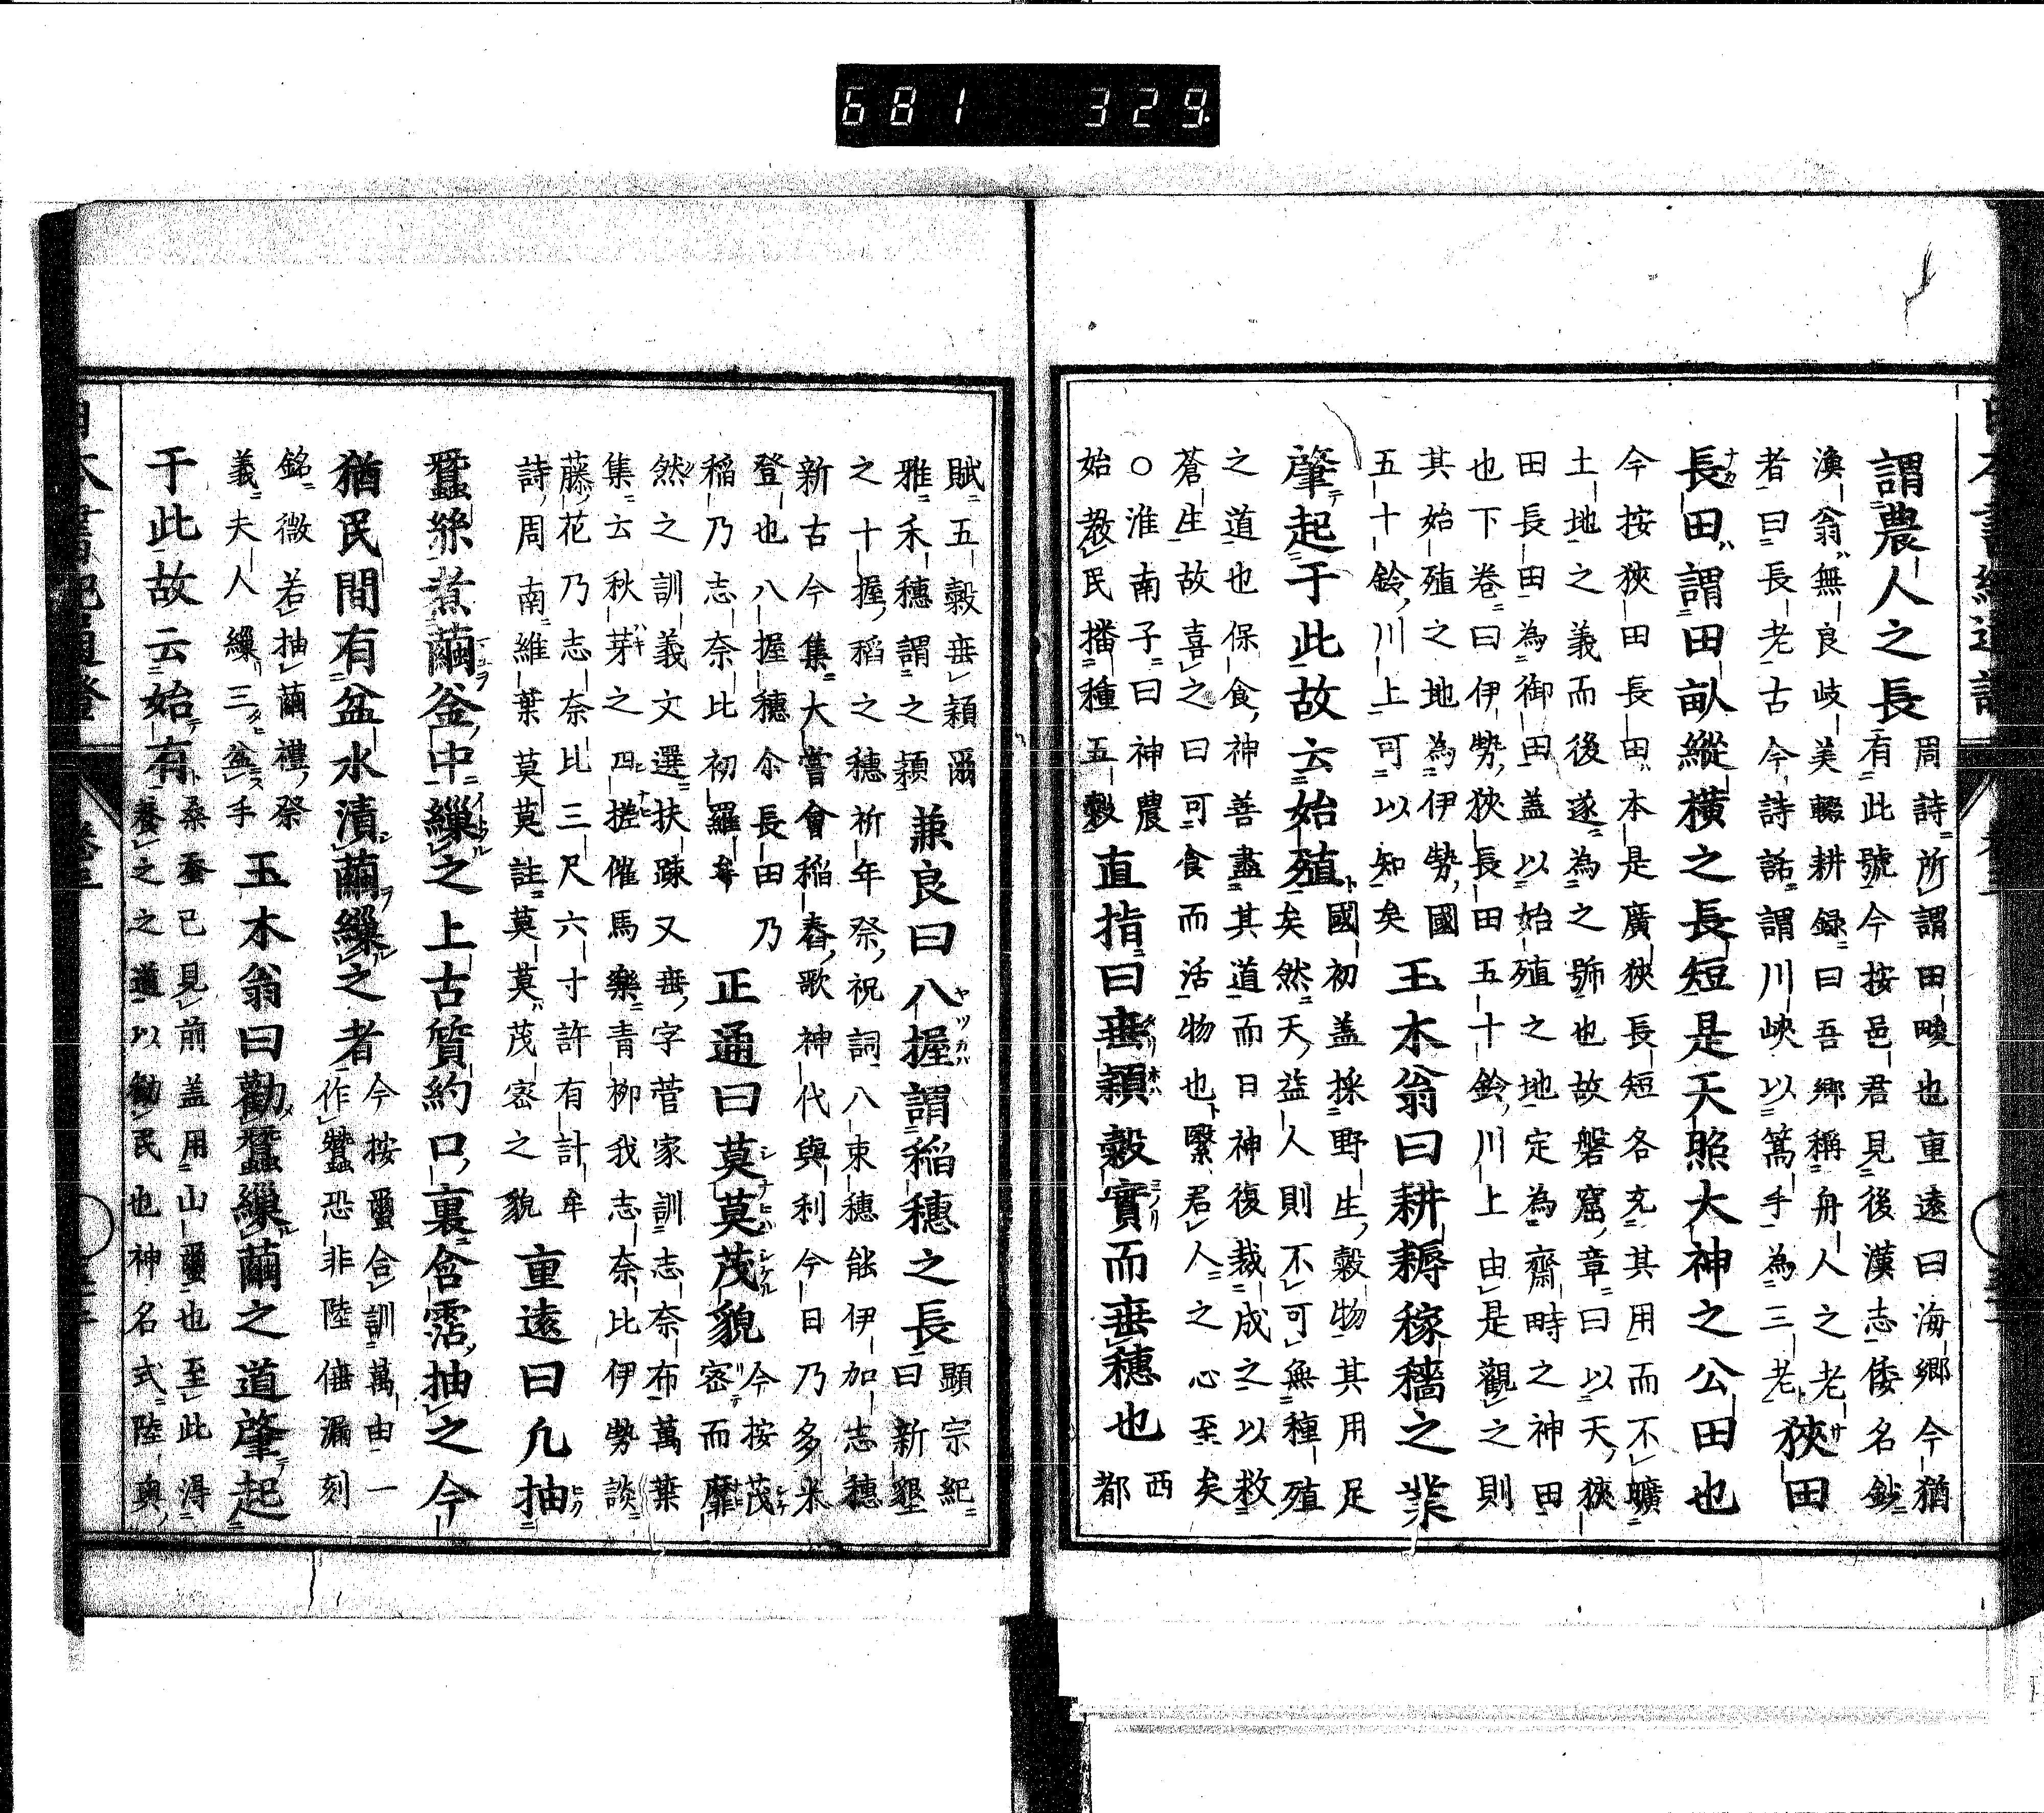 681 329
謂農人之長
周詩所謂田畯也重遠曰海郷今猶
有此號今按邑君見後漢志倭名鈔
漁翁無良岐美輟耕録曰吾郷稱舟人之老
者曰長老古今詩話謂川峽以篙手為三老
狹田
長田謂田畝縱橫之長短是天照大神之公田也
今按狹田長田本是廣狹長短各充其用而不曠
土地之義而後遂為之號也故磐窟章曰以天狹
田長田為御田蓋以始殖之地定為齋畤之神田
也下卷曰伊勢狹長田五十鈴川上由是觀之則
其始殖之地為伊勢國
五十鈴川上可以知矣
玉木翁曰耕耨稼穡之業
肇起于此故云始殖
國初蓋採野生穀物其用足
矣然天益人則不可無種殖
之道也保食神善盡其道而日神復裁成之以救
蒼生故喜之曰可食而活物也緊君人之心至矣
○淮南子曰神農
始教民播種五穀
直指曰垂穎穀實而垂穗也
西
都
賦五穀垂穎爾
雅禾穗謂之穎
兼良曰八握謂稲穗之長
顯宗紀
曰新墾
之十握稻之穗祈年祭祝詞八束穗能伊加志穗
新古今集大嘗會稲舂歌神代與利今日乃多米
登也八握穗尒長田乃
稲乃志奈比初羅牟
正通曰莫莫茂貌
今按茂
密而靡
然之訓義文選扶踈又垂字菅家訓志奈布萬葉
集云秋芽之四搓催馬樂青柳我志奈比伊勢談
藤花乃志奈比三尺六寸許有計牟
詩周南維葉莫莫註莫莫茂密之貌
重遠曰凢抽
蠶絲煮繭釜中繅之上古質約口裏含霑抽之今
猶民間有盆水漬繭繅之者
今按蠒合訓萬由一
作蠶恐非陸佃漏刻
銘微若抽繭禮祭
義夫人繅三盆手
玉木翁曰勸蠶繅繭之道肇起
于此故云始有
桑蚕已見前蓋用山蠒也至此得
養之之道以勸民也神名式陸奥